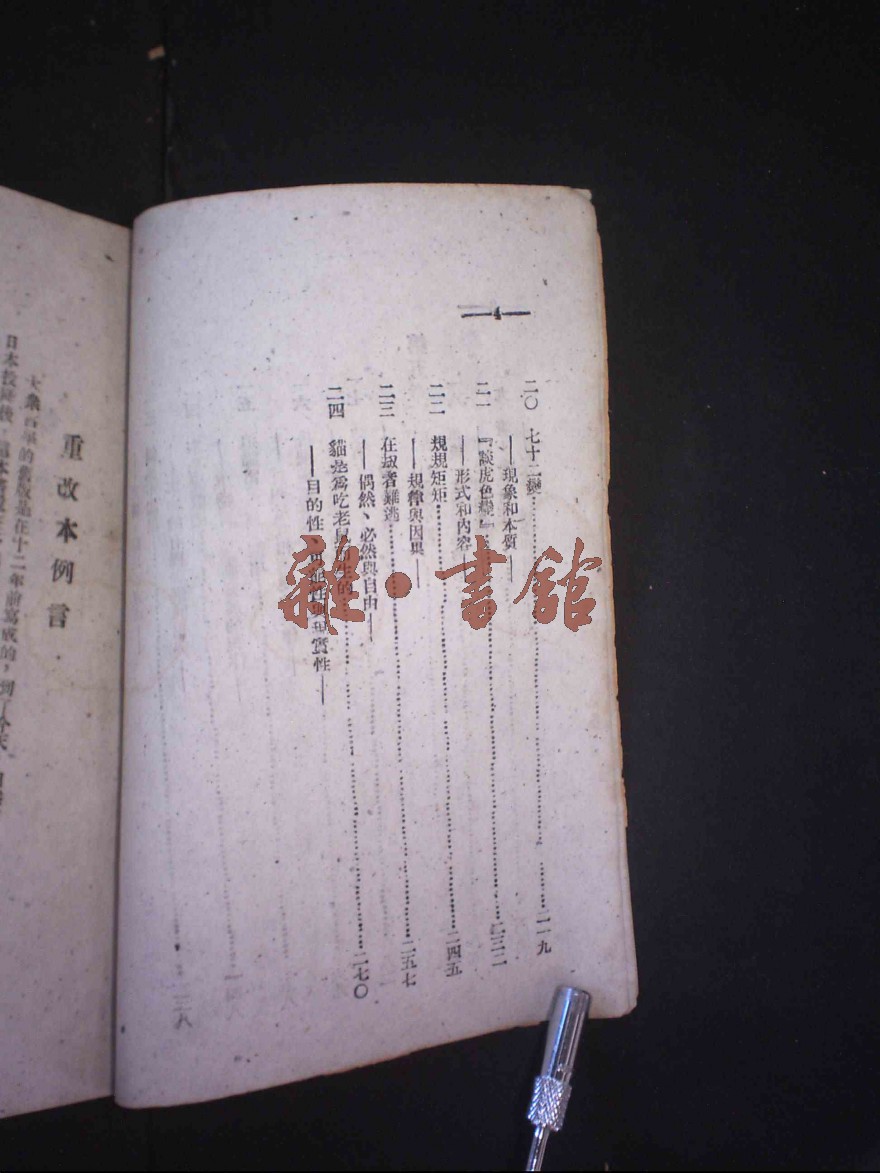 4
二〇 七十二變 二一九
——現象和本質——
二一 『談虎色變』 二三二
——形式和內容——
二二 規規矩矩 二四五
——規律與因果——
二三 在劫者難逃 二五七
——偶然、必然與自由——
二四 貓是爲吃老鼠而生的 二七〇
——目的性、可能性與現實性——
重改本例言
大衆哲學的舊版是在十二年前寫成的，到了今天
日本投降後
雜·書館